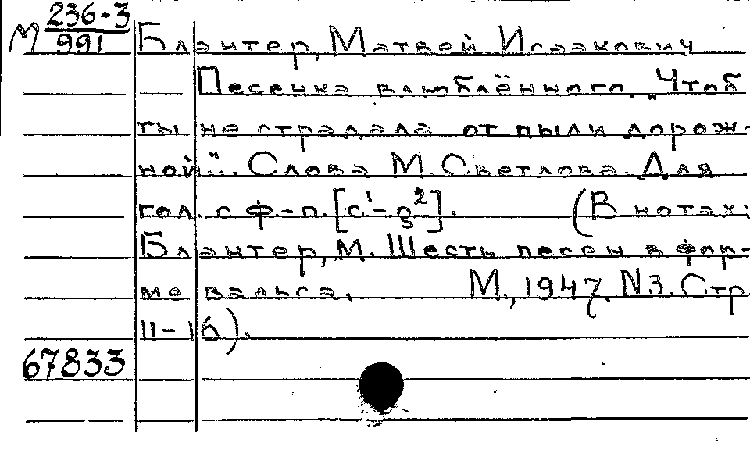 М 236-3
991
Блантер, Матвей Исаакович
Песенка влюблённого. „Чтоб
ты не страдала от пыли дорож-
ной...". Слова М. Светлова. Для
гол. с ф-п. [c¹-g²]. (В нотах:
Блантер, М. Шесть песен в фор-
ме вальса. М., 1947. №3. Стр.
11-16).
67833